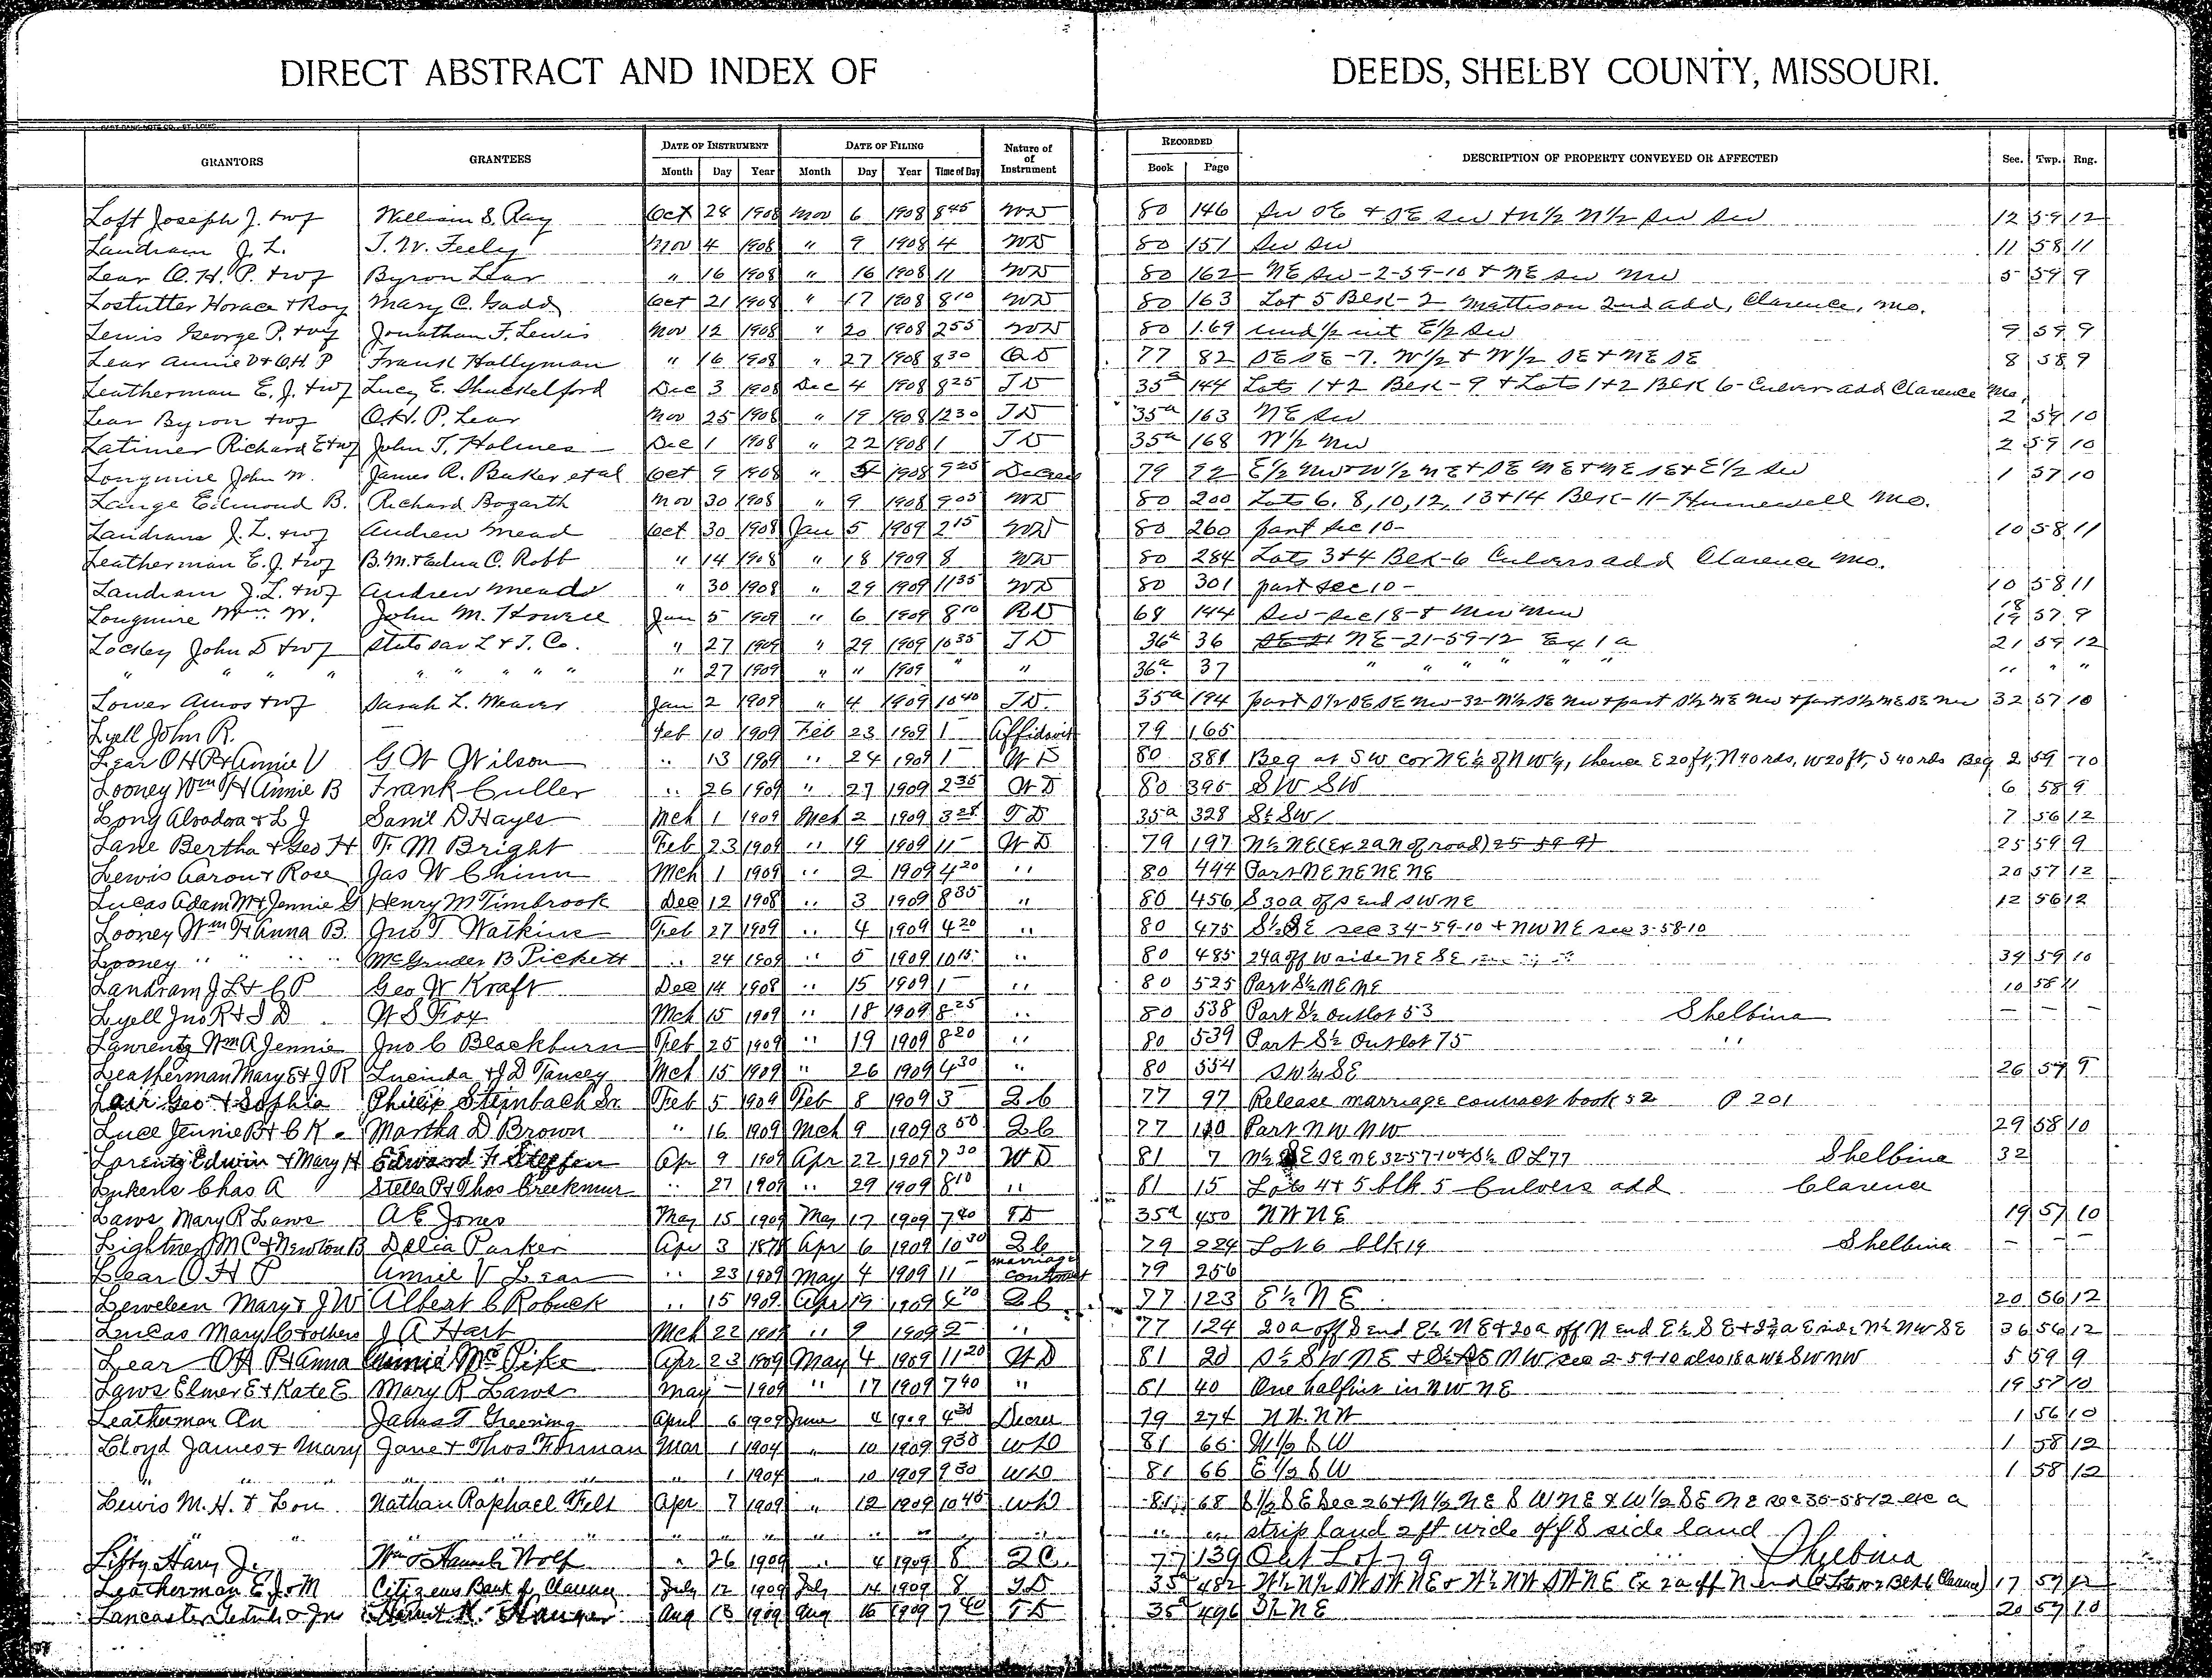 DIRECT ABSTRACT AND INDEX OF DEEDS, SHELBY COUNTY, MISSOURI.
GRANTORS GRANTEES DATE OF INSTRUMENT DATE OF FILING Nature of Instrument RECORDED DESCRIPTION OF PROPERTY CONVEYED OR AFFECTED Sec. Twp. Rng.
Month Day Year Month Day Year Time of Day Book Page
Loft Joseph J. + wf William S. Ray Oct 28 1908 Nov 6 1908 8 45 WD 80 146 SW SE + SE SW + N 1/2 N 1/2 SW SW 12 59 12
Landram J. L. T. W. Feely Nov 4 1908 " 9 1908 4 WD 80 151 SW SW 11 58 11
Lear O. H. P. + wf Byron Lear " 16 1908 " 16 1908 11 WD 80 162 NE SW - 2-59-10 + NE SW NW 5 59 9
Lostutter Horace + Roy Mary C. Gadd Oct 21 1908 " 17 1908 8 10 WD 80 163 Lot 5 Blk - 2 Mattison 2nd add, Clarence, Mo.
Lewis George P. + wf Jonathan F. Lewis Nov 12 1908 " 20 1908 2 55 WD 80 169 und 1/2 int E 1/2 SW 9 59 9
Lear Annie V + O. H. P Frank Hollyman " 16 1908 " 27 1908 8 30 QD 77 82 SE SE - 7. W 1/2 + W 1/2 SE + NE SE 8 58 9
Leatherman E. J. + wf Lucy E. Shackelford Dec 3 1908 Dec 4 1908 8 25 TD 35a 144 Lots 1+2 Blk - 9 + Lots 1+2 Blk 6 - Culvers add Clarence Mo.
Lear Byron + wf O. H. P. Lear Nov 25 1908 " 19 1908 12 30 TD 35a 163 NE SW 2 59 10
Latimer Richard E + wf John T. Holmes Dec 1 1908 " 22 1908 1 TD 35a 168 W 1/2 NW 2 59 10
Longmire John W. James R. Baker et al Oct 9 1908 " 1908 9 25 Decree 79 92 E 1/2 NW + W 1/2 NE + SE NE + NE SE + E 1/2 SW 1 57 10
Lange Edmond B. Richard Bogarth Nov 30 1908 " 9 1908 9 05 WD 80 200 Lots 6, 8, 10, 12, 13 + 14 Blk - 11 - Hunnewell Mo.
Landram J. L. + wf Andrew Mead Oct 30 1908 Jan 5 1909 2 15 WD 80 260 part Sec 10 - 10 58 11
Leatherman E. J. + wf B. M. + Edna C. Robb " 14 1908 " 18 1909 8 WD 80 284 Lots 3+4 Blk - 6 Culvers add Clarence Mo.
Landram J. L. + wf Andrew Meads " 30 1908 " 29 1909 11 35 WD 80 301 part Sec 10 - 10 58 11
Longmire Wm W. John M. Howell Jan 5 1909 " 6 1909 8 10 RD 68 144 SW - Sec 18 - + NW NW 18 19 57 9
Locsley John D + wf State Sav L + T. Co. " 27 1909 " 29 1909 10 35 TD 36a 36 NE - 21-59-12 Ex 1 a 21 59 12
" " " " " " " " " " 27 1909 " " 1909 " " 36a 37 " " " " " " " " "
Lower Amos + wf Sarah L. Weaver Jan 2 1909 " 4 1909 10 40 TD. 35a 194 part S 1/2 SE SE NW - 32 - N 1/2 SE NW + part S 1/2 NE NW + part S 1/2 NE SE NW 32 57 10
Lyell John R. — Feb 10 1909 Feb 23 1909 1 — Affidavit 79 165
Lear O H P + Annie V G W Wilson " 13 1909 " 24 1909 1 — WD 80 381 Beg at SW cor NE 1/4 of NW 1/4, thence E 20 ft, N 40 rds, W 20 ft, S 40 rds Beg 2 59 10
Looney Wm H Annie B Frank Culler " 26 1909 " 27 1909 2 35 WD 80 395 SW SW 6 58 9
Long Alvadora + L J Saml D Hayes Mch 1 1909 Mch 2 1909 3 28 TD 35a 328 S 1/2 SW 7 56 12
Lane Bertha + Geo H F M Bright Feb 23 1909 " 19 1909 11 — WD 79 197 N 1/2 NE (Ex 2a N of road) 25 59 9 25 59 9
Lewis Aaron + Rose Jas W Chinn Mch 1 1909 " 2 1909 4 20 " 80 444 Part NE NE NE NE 20 57 12
Lucas Adam M + Jennie G Henry M Timbrook Dec 12 1908 " 3 1909 8 35 " 80 456 S 30a of S end SW NE 12 56 12
Looney Wm H Anna B. Jno T Watkins Feb 27 1909 " 4 1909 4 20 " 80 475 S 1/2 SE sec 34-59-10 + NW NE sec 3-58-10
Looney " " " " McGruder B Pickett " 24 1909 " 5 1909 10 15 " 80 485 24a off W side NE SE 34 59 10
Landram J L + C P Geo W Kraft Dec 14 1908 " 15 1909 1 — " 80 525 Part S 1/2 NE NE 10 58 11
Lyell Jno R + S D W S Fox Mch 15 1909 " 18 1909 8 25 " 80 538 Part S 1/2 outlot 53 Shelbina — — —
Lawrentz Wm A Jennie Jno C Blackburn Feb 25 1909 " 19 1909 8 20 " 80 539 Part S 1/2 Outlot 75 "
Leatherman Mary E + J R Lucinda + J D Tansey Mch 15 1909 " 26 1909 4 30 " 80 554 SW 1/4 SE 26 57 9
Lair Geo + Sophia Phillip Steinbach Sr Feb 5 1909 Feb 8 1909 3 — 2C 77 97 Release marriage contract book 52 P 201
Luce Jennie B + C K Martha D Brown " 16 1909 Mch 9 1909 3 50 2C 77 110 Part NW NW 29 58 10
Lorentz Edwin + Mary H Edward F Steffen Apr 9 1909 Apr 22 1909 7 30 WD 81 7 N 1/2 SE SE NE 32-57-10 + S 1/2 OL 77 Shelbina 32
Lukens Chas A Stella P + Thos Creekmur " 27 1909 " 29 1909 8 10 " 81 15 Lots 4 + 5 blk 5 Culvers add Clarence
Laws Mary R Laws A E Jones May 15 1909 May 17 1909 7 40 TD 35a 450 NW NE 19 57 10
Lightner M C + Newton B Delia Parker Apr 3 187 Apr 6 1909 10 30 2C 79 224 Lot 6 blk 19 Shelbina — — —
Lear O H P Annie V Lear " 23 1909 May 4 1909 11 — marriage contract 79 256
Leweleen Mary + J W Albert C Robuck " 15 1909 Apr 19 1909 2C 77 123 E 1/2 NE 20 56 12
Lucas Mary C + others J A Hart Mch 22 1909 " 9 1909 2 — " 77 124 20a off S end E 1/2 NE + 20a off N end E 1/2 SE + 2 3/4 a E side N 1/2 NW SE 36 56 12
Lear O H P + Anna Annie Mc Pike Apr 23 1909 May 4 1909 11 20 WD 81 20 S 1/2 SW NE + S 1/2 SE NW sec 2-59-10 also 18a W 1/2 SW NW 5 59 9
Laws Elmer E + Kate E Mary R Laws May — 1909 " 17 1909 7 40 " 81 40 One half int in NW NE 19 57 10
Leatherman An James T Greening April 6 1909 June 4 1909 4 30 Decree 79 274 NW. NW 1 56 10
Lloyd James + Mary Jane + Thos Forman Mar 1 1904 " 10 1909 9 30 WD 81 66 W 1/2 SW 1 58 12
" " " " " " 1 1904 " 10 1909 9 30 WD 81 66 E 1/2 SW 1 58 12
Lewis M. H. + Lou Nathan Raphael Felt Apr 7 1909 " 12 1909 10 45 WD 81 68 S 1/2 SE Sec 26 + N 1/2 NE SW NE + W 1/2 SE NE sec 35-58-12 exc a
" " " " " " " " " " " " " " " strip land 2 ft wide off S side land
Libby Harry J. Wm + Hannah Wolf " 26 1909 " 4 1909 8 2C. 77 139 Out Lot 79 Shelbina
Leatherman E. J + M Citizens Bank of Clarence July 12 1909 July 14 1909 8 TD 35a 482 W 1/2 N 1/2 SW SW NE + N 1/2 NW SW NE Ex 2a off N end 17 57 12
Lancaster + Jno Aug 13 1909 Aug 16 1909 7 40 TD 35a 496 S 1/2 NE 20 57 10